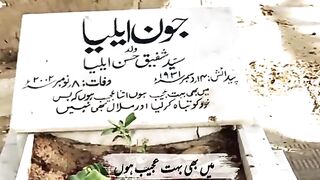 جون ایلیا
ولد
سید شفیق حسن ایلیا
پیدائش: ۱۴ دسمبر ۱۹۳۱ وفات: ۸ نومبر ۲۰۰۲
میں بھی بہت عجیب ہوں اتنا عجیب ہوں کہ بس
خود کو تباہ کر لیا اور ملال بھی نہیں
میں بھی بہت عجیب ہوں